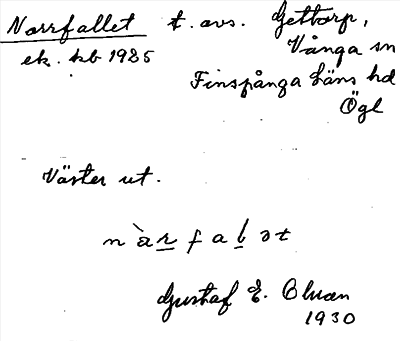 Norrfallet t. avs. Gettorp,
ek. kb 1925 Vånga sn
Finspånga läns hd
Ögl
Väster ut.
n à r f a b ə t
Gustaf E.
1930